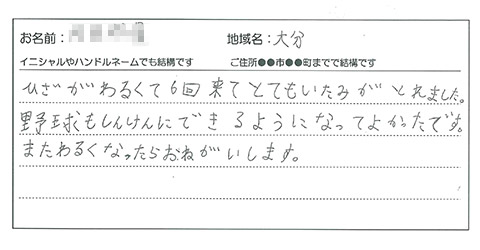 お名前: 地域名: 大分
イニシャルやハンドルネームでも結構です ご住所●●市●●町までで結構です
ひざがわるくて6回来てとてもいたみがとれました。
野球もしんけんにできるようになってよかったです。
またわるくなったらおねがいします。